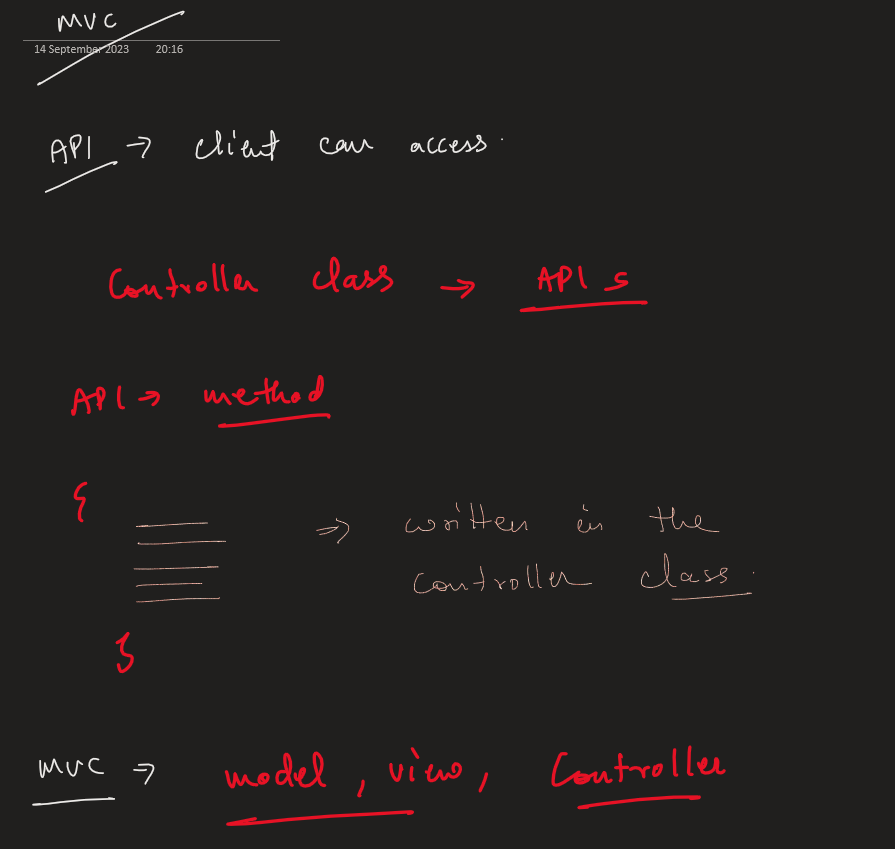 MVC
14 September 2023 20:16
API → client can access.
Controller class → APIs
API → method
{
⇒ written in the
controller class.
}
MVC → model, view, Controller